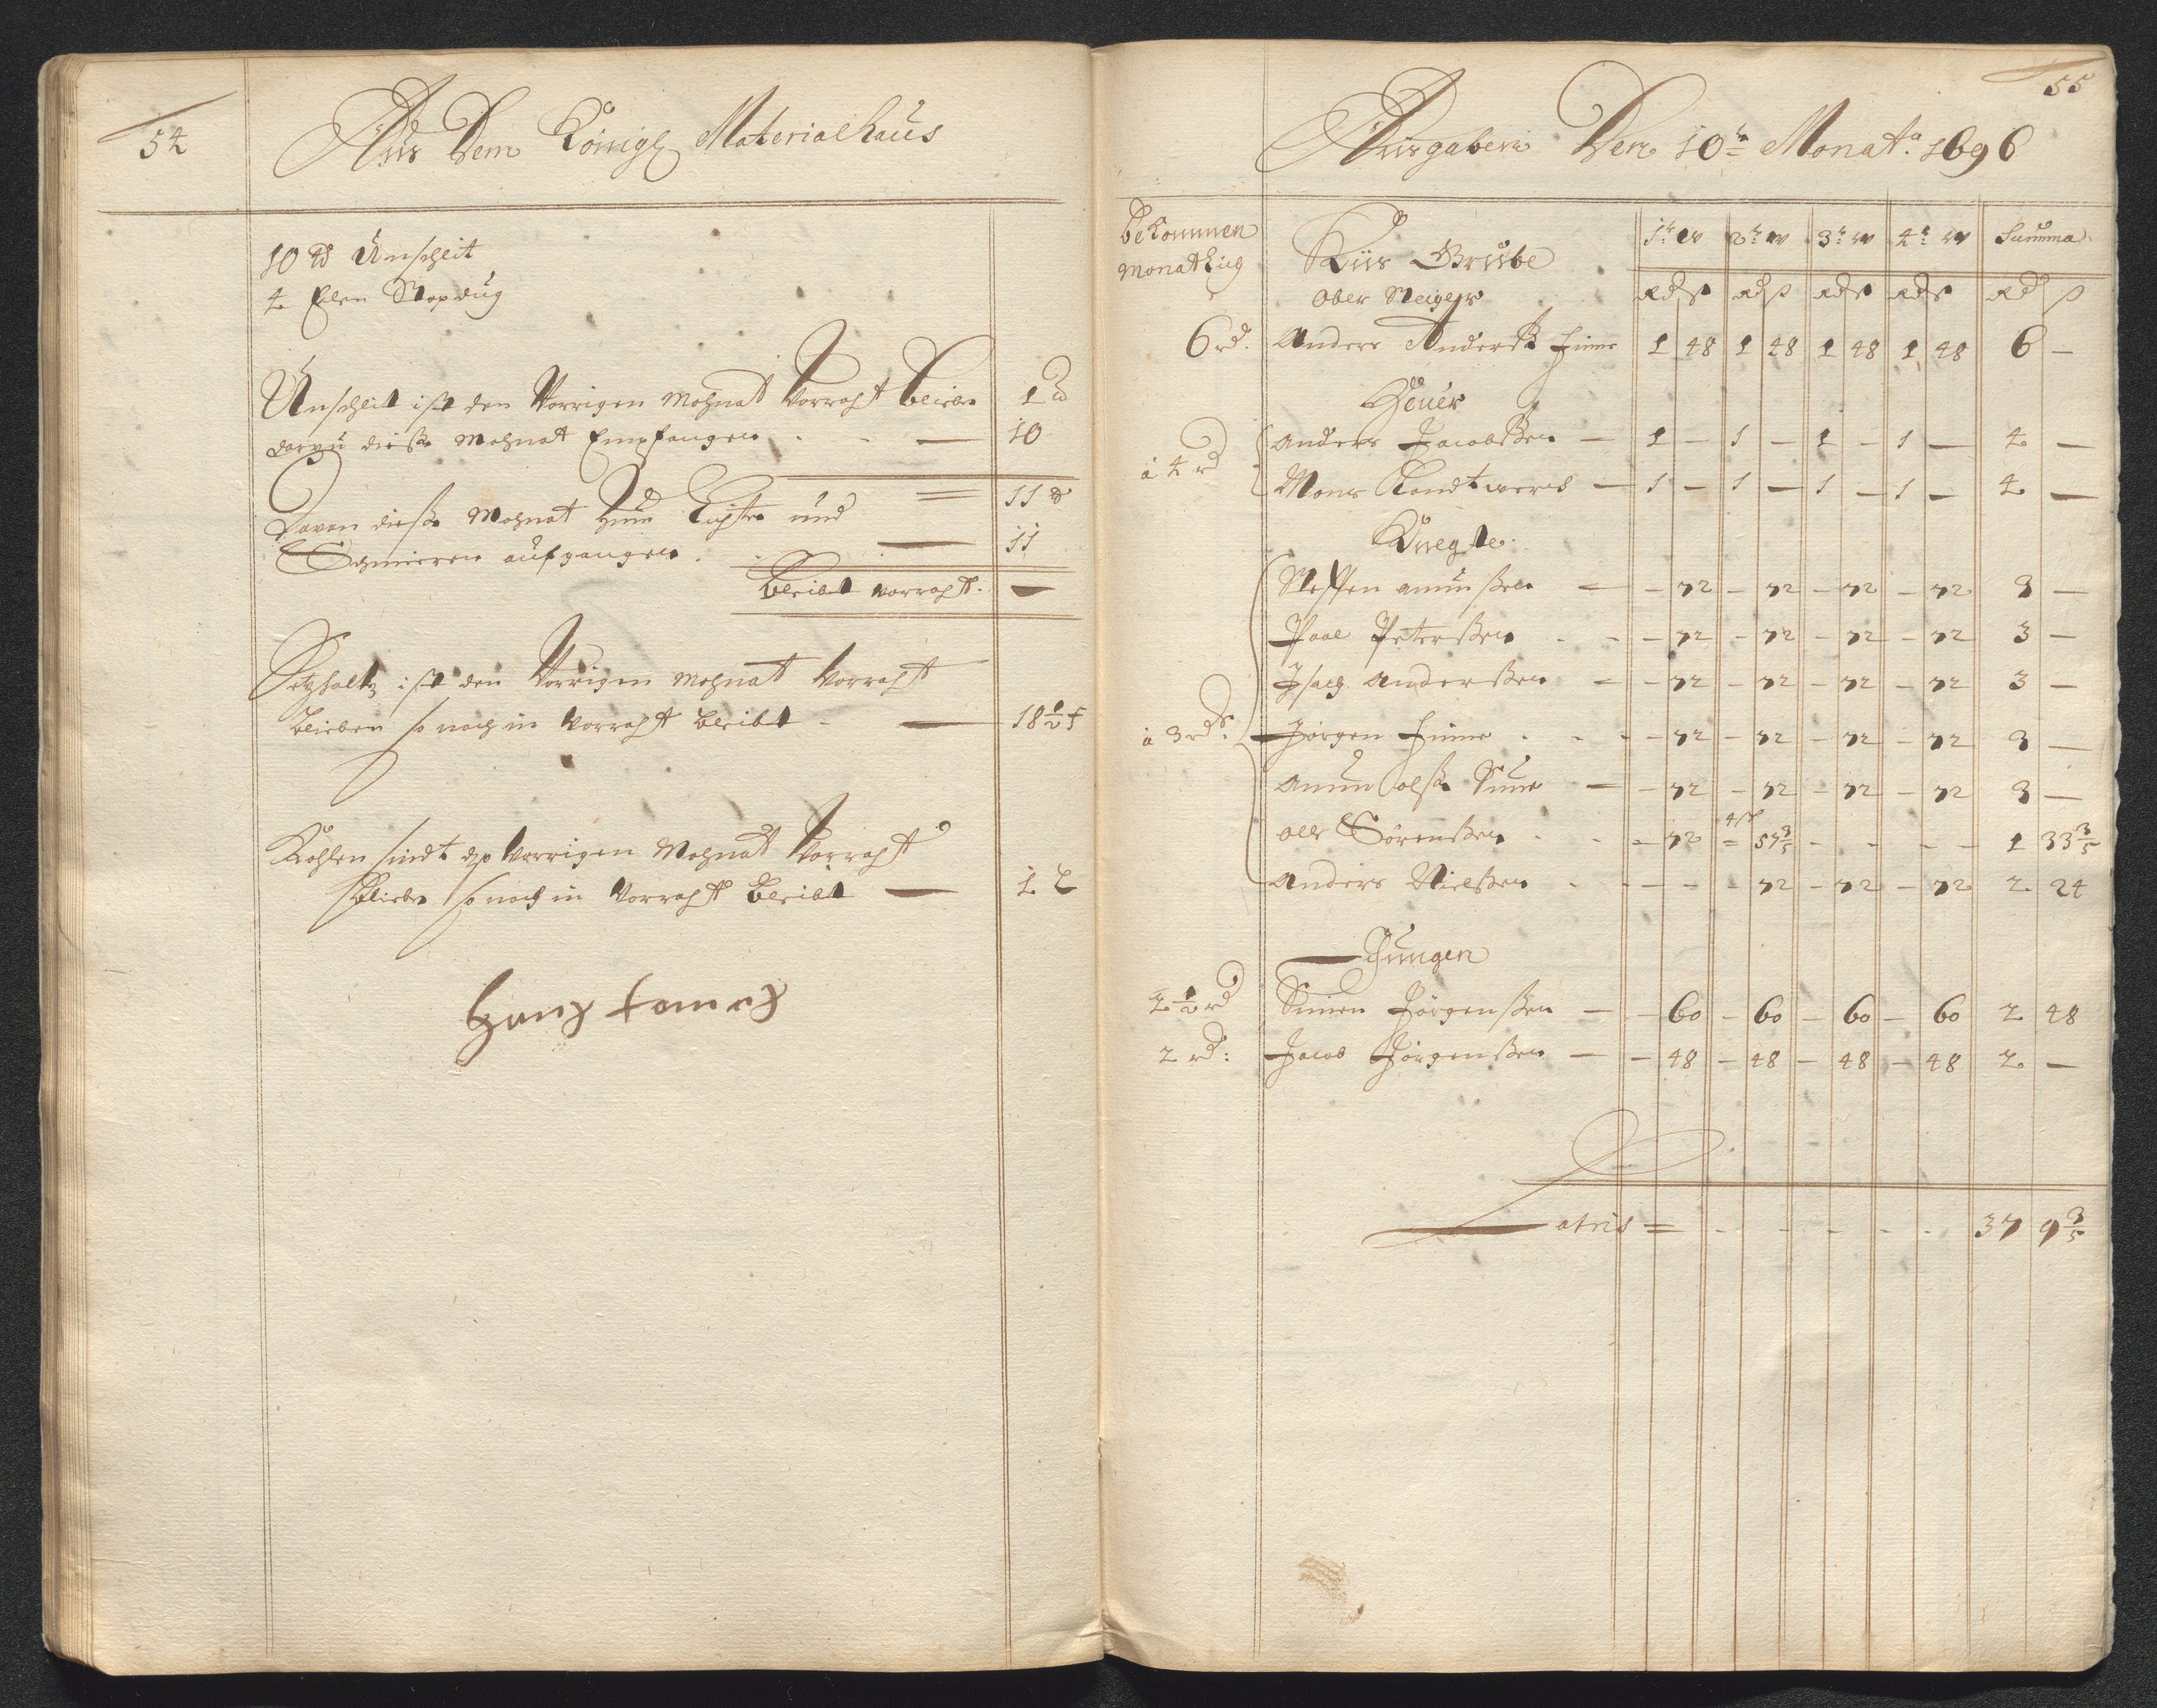 54
Aus Dem Königl Materialhaus
10 ℔ Unschleit
4 Elen
Unschleit ist den Vorrigen Mohnat Vorraht blieben 1 ℔
darzu dießen Mohnat Empfangen - - — 10
11 ℔
Davon dießen Mohnat zum Lichten und
Schmieren aufgangen . — 11
bleibt vorraht. —
Setzholtz ist den Vorrigen Mohnat Vorraht
blieben so noch in Vorraht bleibt - — 18 1/2 f
Kohlen sindt Vorrigen Mohnat Vorraht
blieben so noch in Vorraht bleibt — 1 L
Hans
55
Ausgaben Den 10tn Monat: 1696
bekommen
Monatlich
Kiis Grube 1t W 2t W 3t W 4t W Summa
Ober Steiger Rd ß Rd ß Rd ß Rd ß Rd ß
6 rd. Anders Anderß Finne 1 48 1 48 1 48 1 48 6 —
Heuer
à 4 rd Anders Jacobßen — 1 — 1 — 1 — 1 — 4 —
Mons — 1 — 1 — 1 — 1 — 4 —
Knegte.
Steffen Amunßen — - 72 - 72 - 72 - 72 3 —
Poul Peterßen - - - 72 - 72 - 72 - 72 3 —
Isach Anderßen - - 72 - 72 - 72 - 72 3 —
à 3 rd: Jörgen Finne - - - 72 - 72 - 72 - 72 3 —
Amun olßen — - 72 - 72 - 72 - 72 3 —
4 ß
Ole Sörenßen - - - 72 - 57 3/5 - - - - 1 33 3/5
Anders Nielßen - - - - - 72 - 72 - 72 2 24
Jungen
2 1/2 rd Simen Jörgenßen — - 60 - 60 - 60 - 60 2 48
2 rd: Jacob Jörgenßen — - 48 - 48 - 48 - 48 2 —
Latris = - - - - - - 37 9 3/5